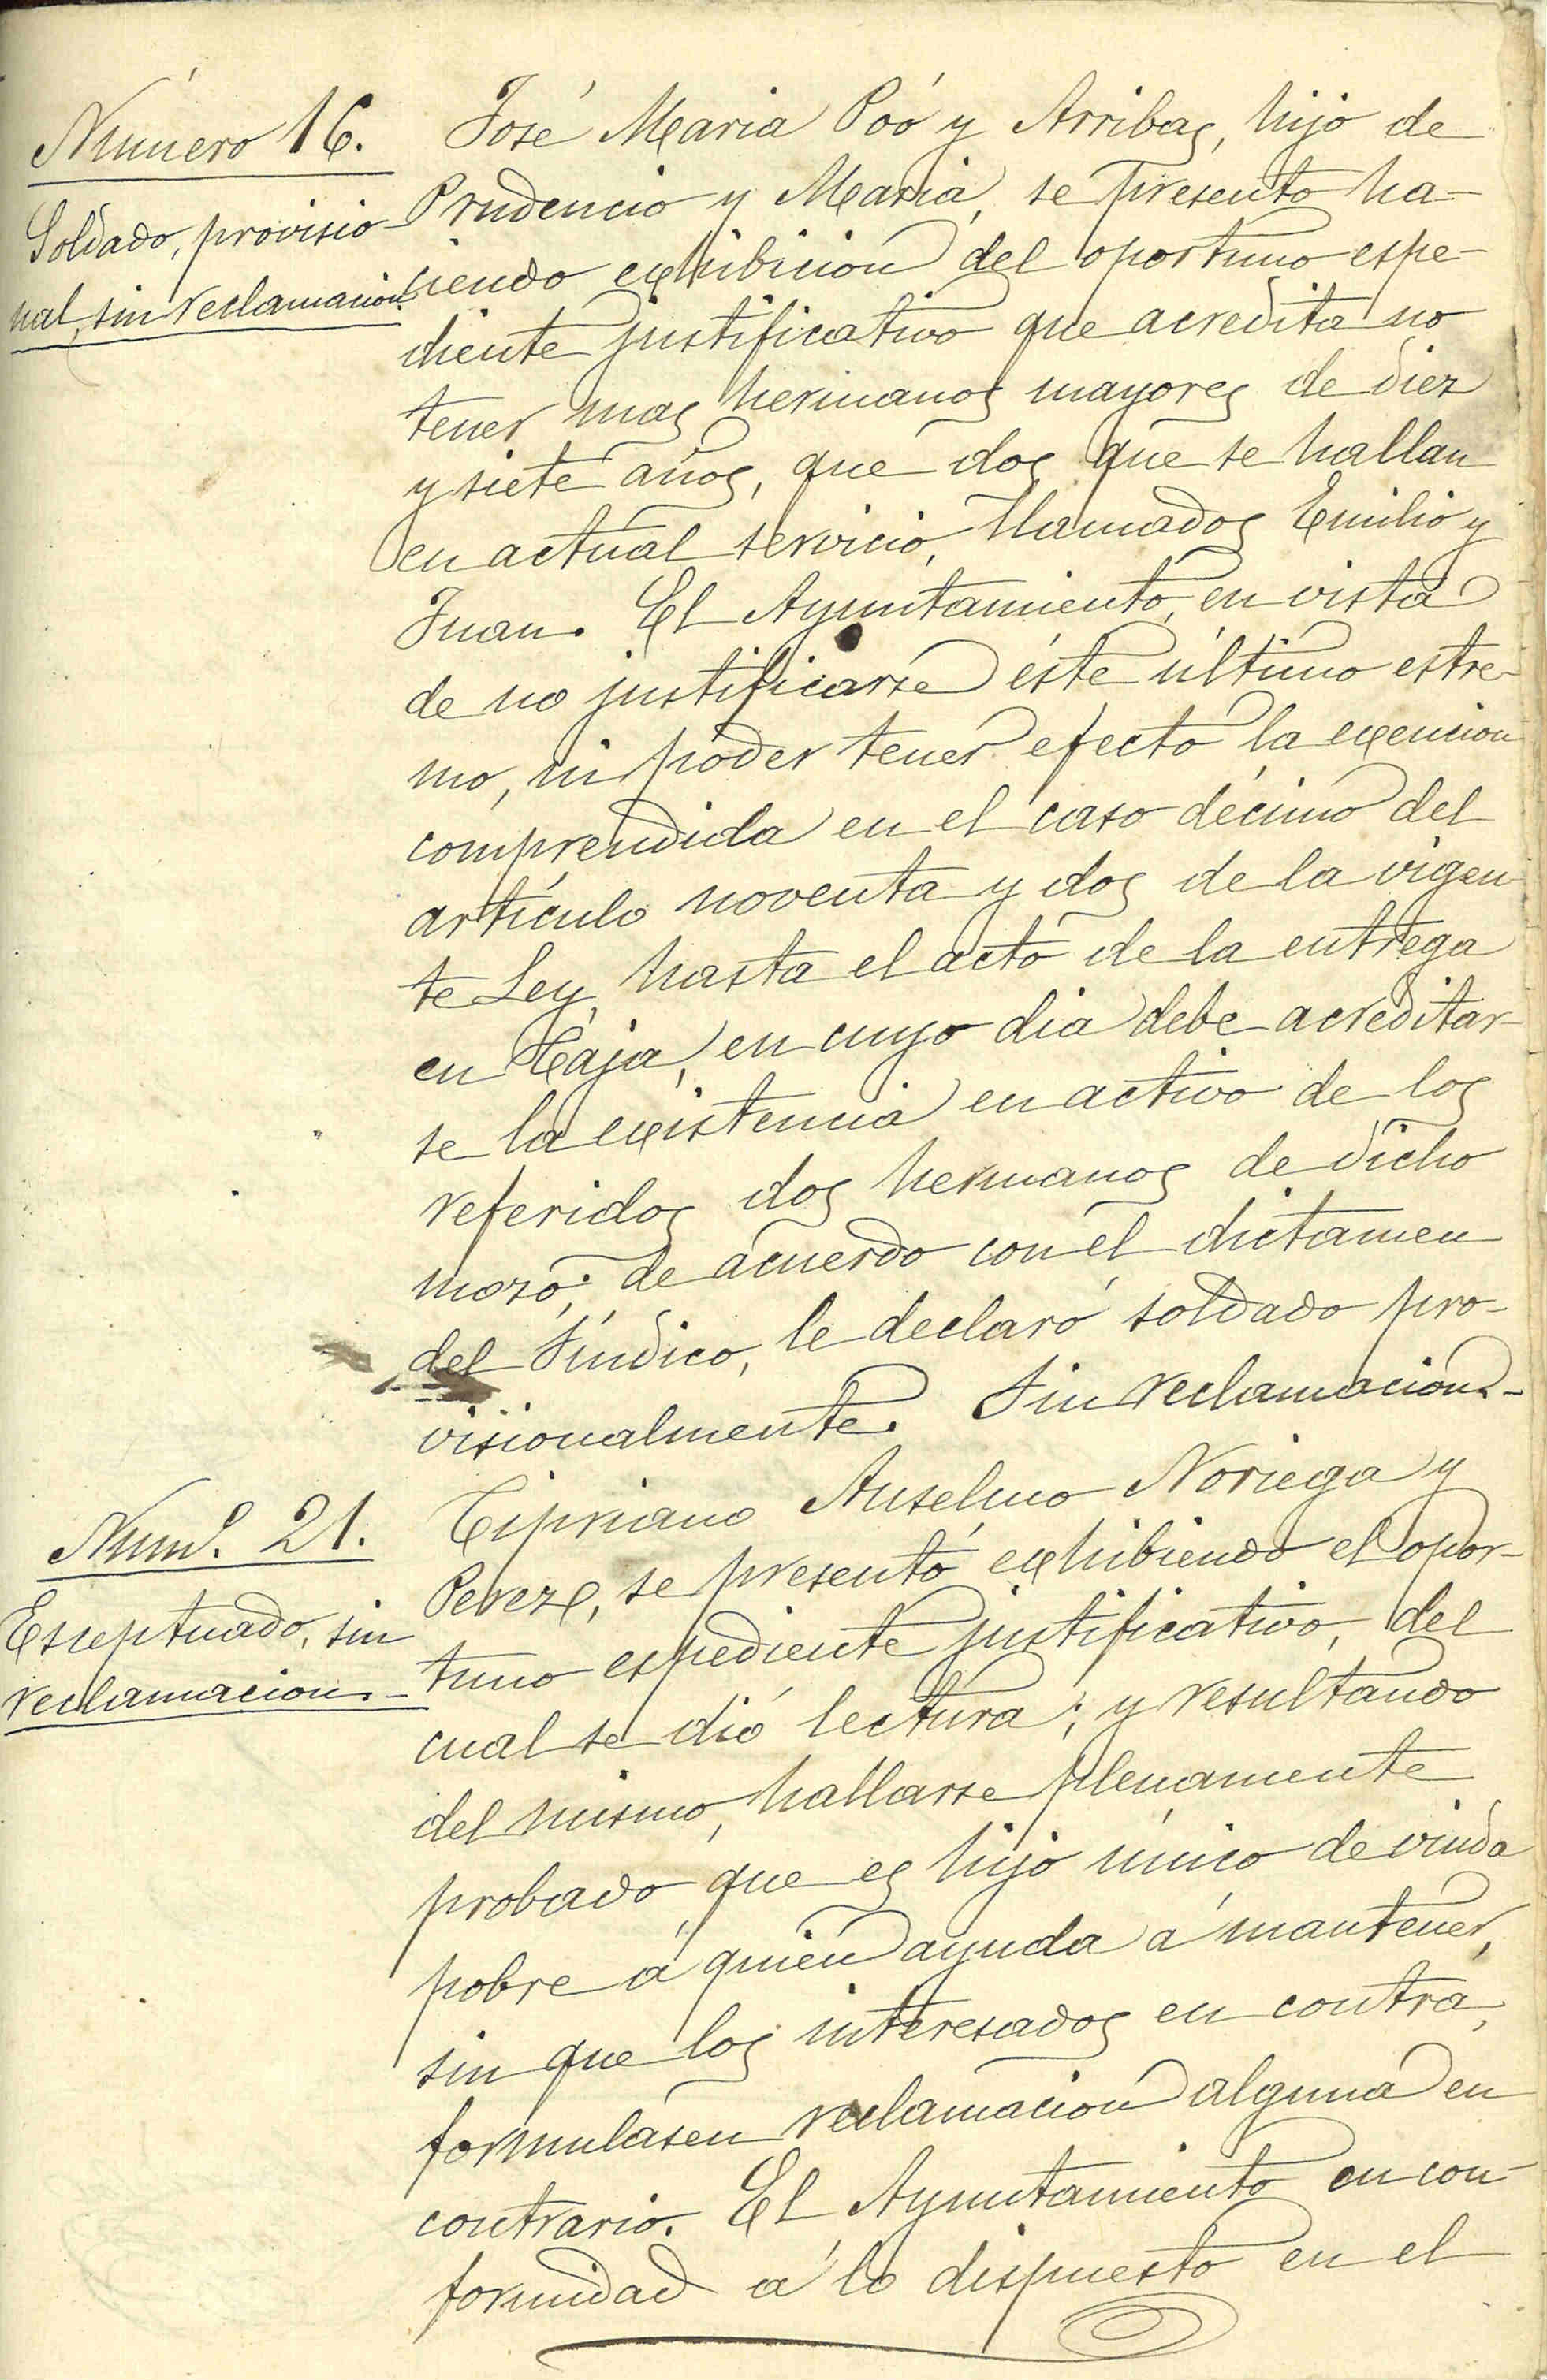 Número 16.
Soldado, provisio-
nal, sin reclamacion.
José Maria Póo y Arribas, hijo de
Prudencio y Maria, se presentó ha-
ciendo exhibicion del oportuno espe-
diente justificativo que acredita no
tener mas hermanos mayores de diez
y siete años, que dos que se hallan
en actual servicio, llamados Emilio y
Juan. El Ayuntamiento, en vista
de no justificarse éste último estre-
mo, ni poder tener efecto la exencion
comprendida en el caso décimo del
artículo noventa y dos de la vigen-
te Ley, hasta el acto de la entrega
en Caja, en cuyo dia debe acreditar-
se la existencia en activo de los
referidos dos hermanos de dicho
mozo; de acuerdo con el dictamen
del Síndico, le declaró soldado pro-
visionalmente. Sin reclamacion.-
Numº. 21.
Esceptuado, sin
reclamacion.-
Cipriano Anselmo Noriega y
Perez, se presentó exhibiendo el opor-
tuno espediente justificativo, del
cual se dió lectura; y resultando
del mismo, hallarse plenamente
probado, que es hijo único de viuda
pobre á quien ayuda á mantener,
sin que los interesados en contra,
formulasen reclamacion alguna en
contrario. El Ayuntamiento en con-
formidad á lo dispuesto en el